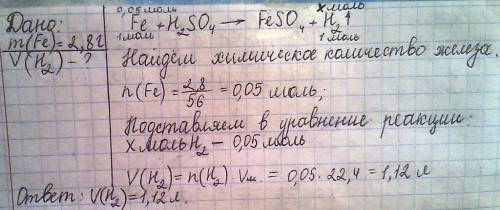 Дано:
m(Fe)=2,8г
V(H₂) - ?
0,05моль х моль
Fe + H₂SO₄ → FeSO₄ + H₂↑
1моль 1моль
Найдём химическое количество железа.
n(Fe) = 2,8/56 = 0,05 моль;
Подставляем в уравнение реакции:
х моль H₂ – 0,05 моль
V(H₂) = n(H₂) · Vм = 0,05 · 22,4 = 1,12 л
Ответ: V(H₂) = 1,12 л.